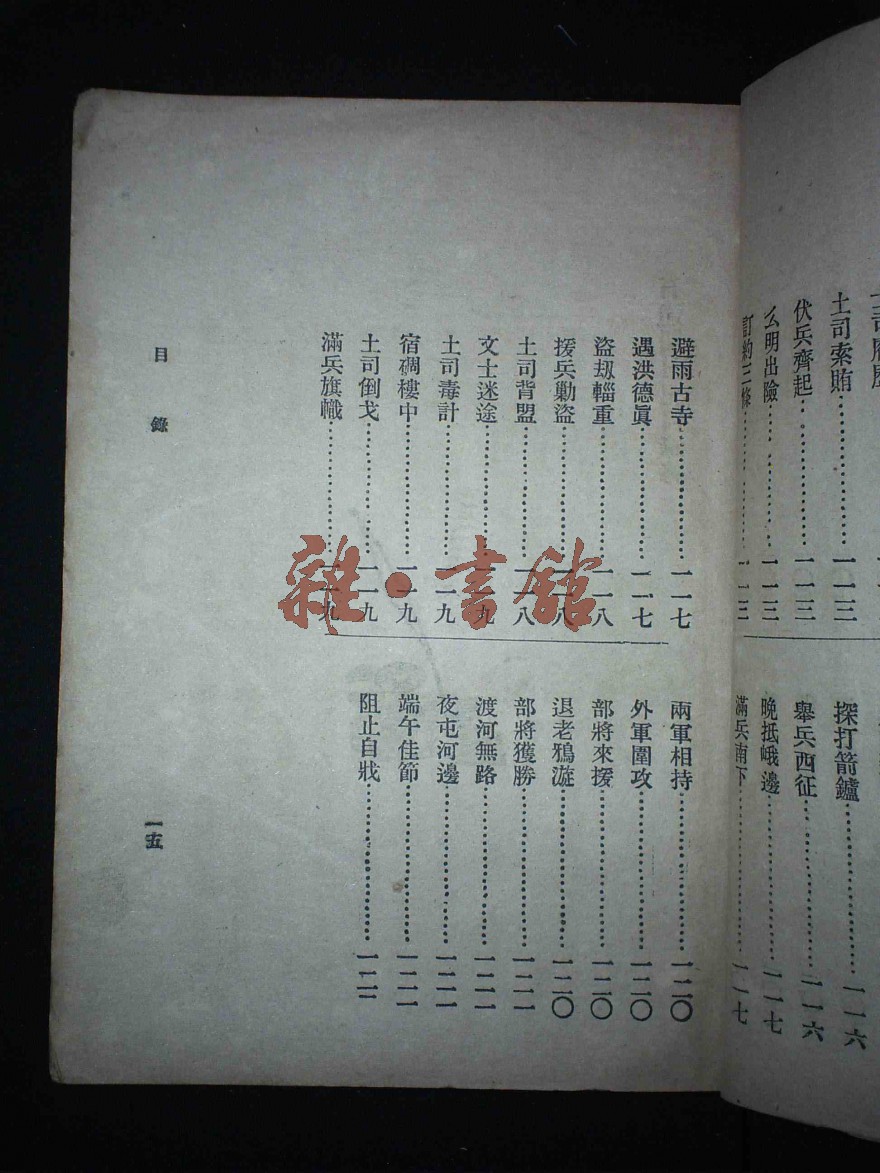 土司索賄…………一一三
伏兵齊起…………一一三
么明出險…………一一三
訂約三條…………一一三
探打箭鑪…………一一六
舉兵西征…………一一六
晚抵峨邊…………一一七
滿兵南下…………一一七
避雨古寺…………一一七
遇洪德眞…………一一七
盜刼輜重…………一一八
援兵勦盜…………一一八
土司背盟…………一一八
文士迷途…………一一九
土司毒計…………一一九
宿碉樓中…………一一九
土司倒戈…………一一九
滿兵旗幟…………一一九
兩軍相持…………一二〇
外軍圍攻…………一二〇
部將來援…………一二〇
退老鴉漩…………一二〇
部將獲勝…………一二一
渡河無路…………一二一
夜屯河邊…………一二一
端午佳節…………一二一
阻止自戕…………一二二
目錄
一五
雜·書館